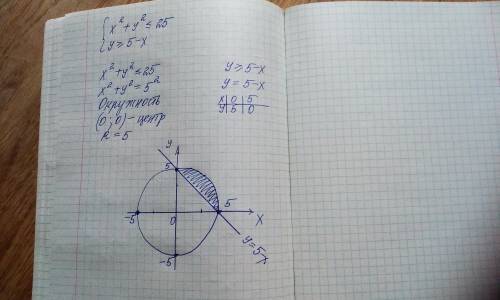 { x² + y² ≤ 25
y ≥ 5-x
x² + y² ≤ 25
x² + y² = 5²
Окружность
(0; 0) - центр
R = 5
y ≥ 5-x
y = 5-x
x | 0 | 5
y | 5 | 0
y
5
-5
0
5
x
-5
y=5-x